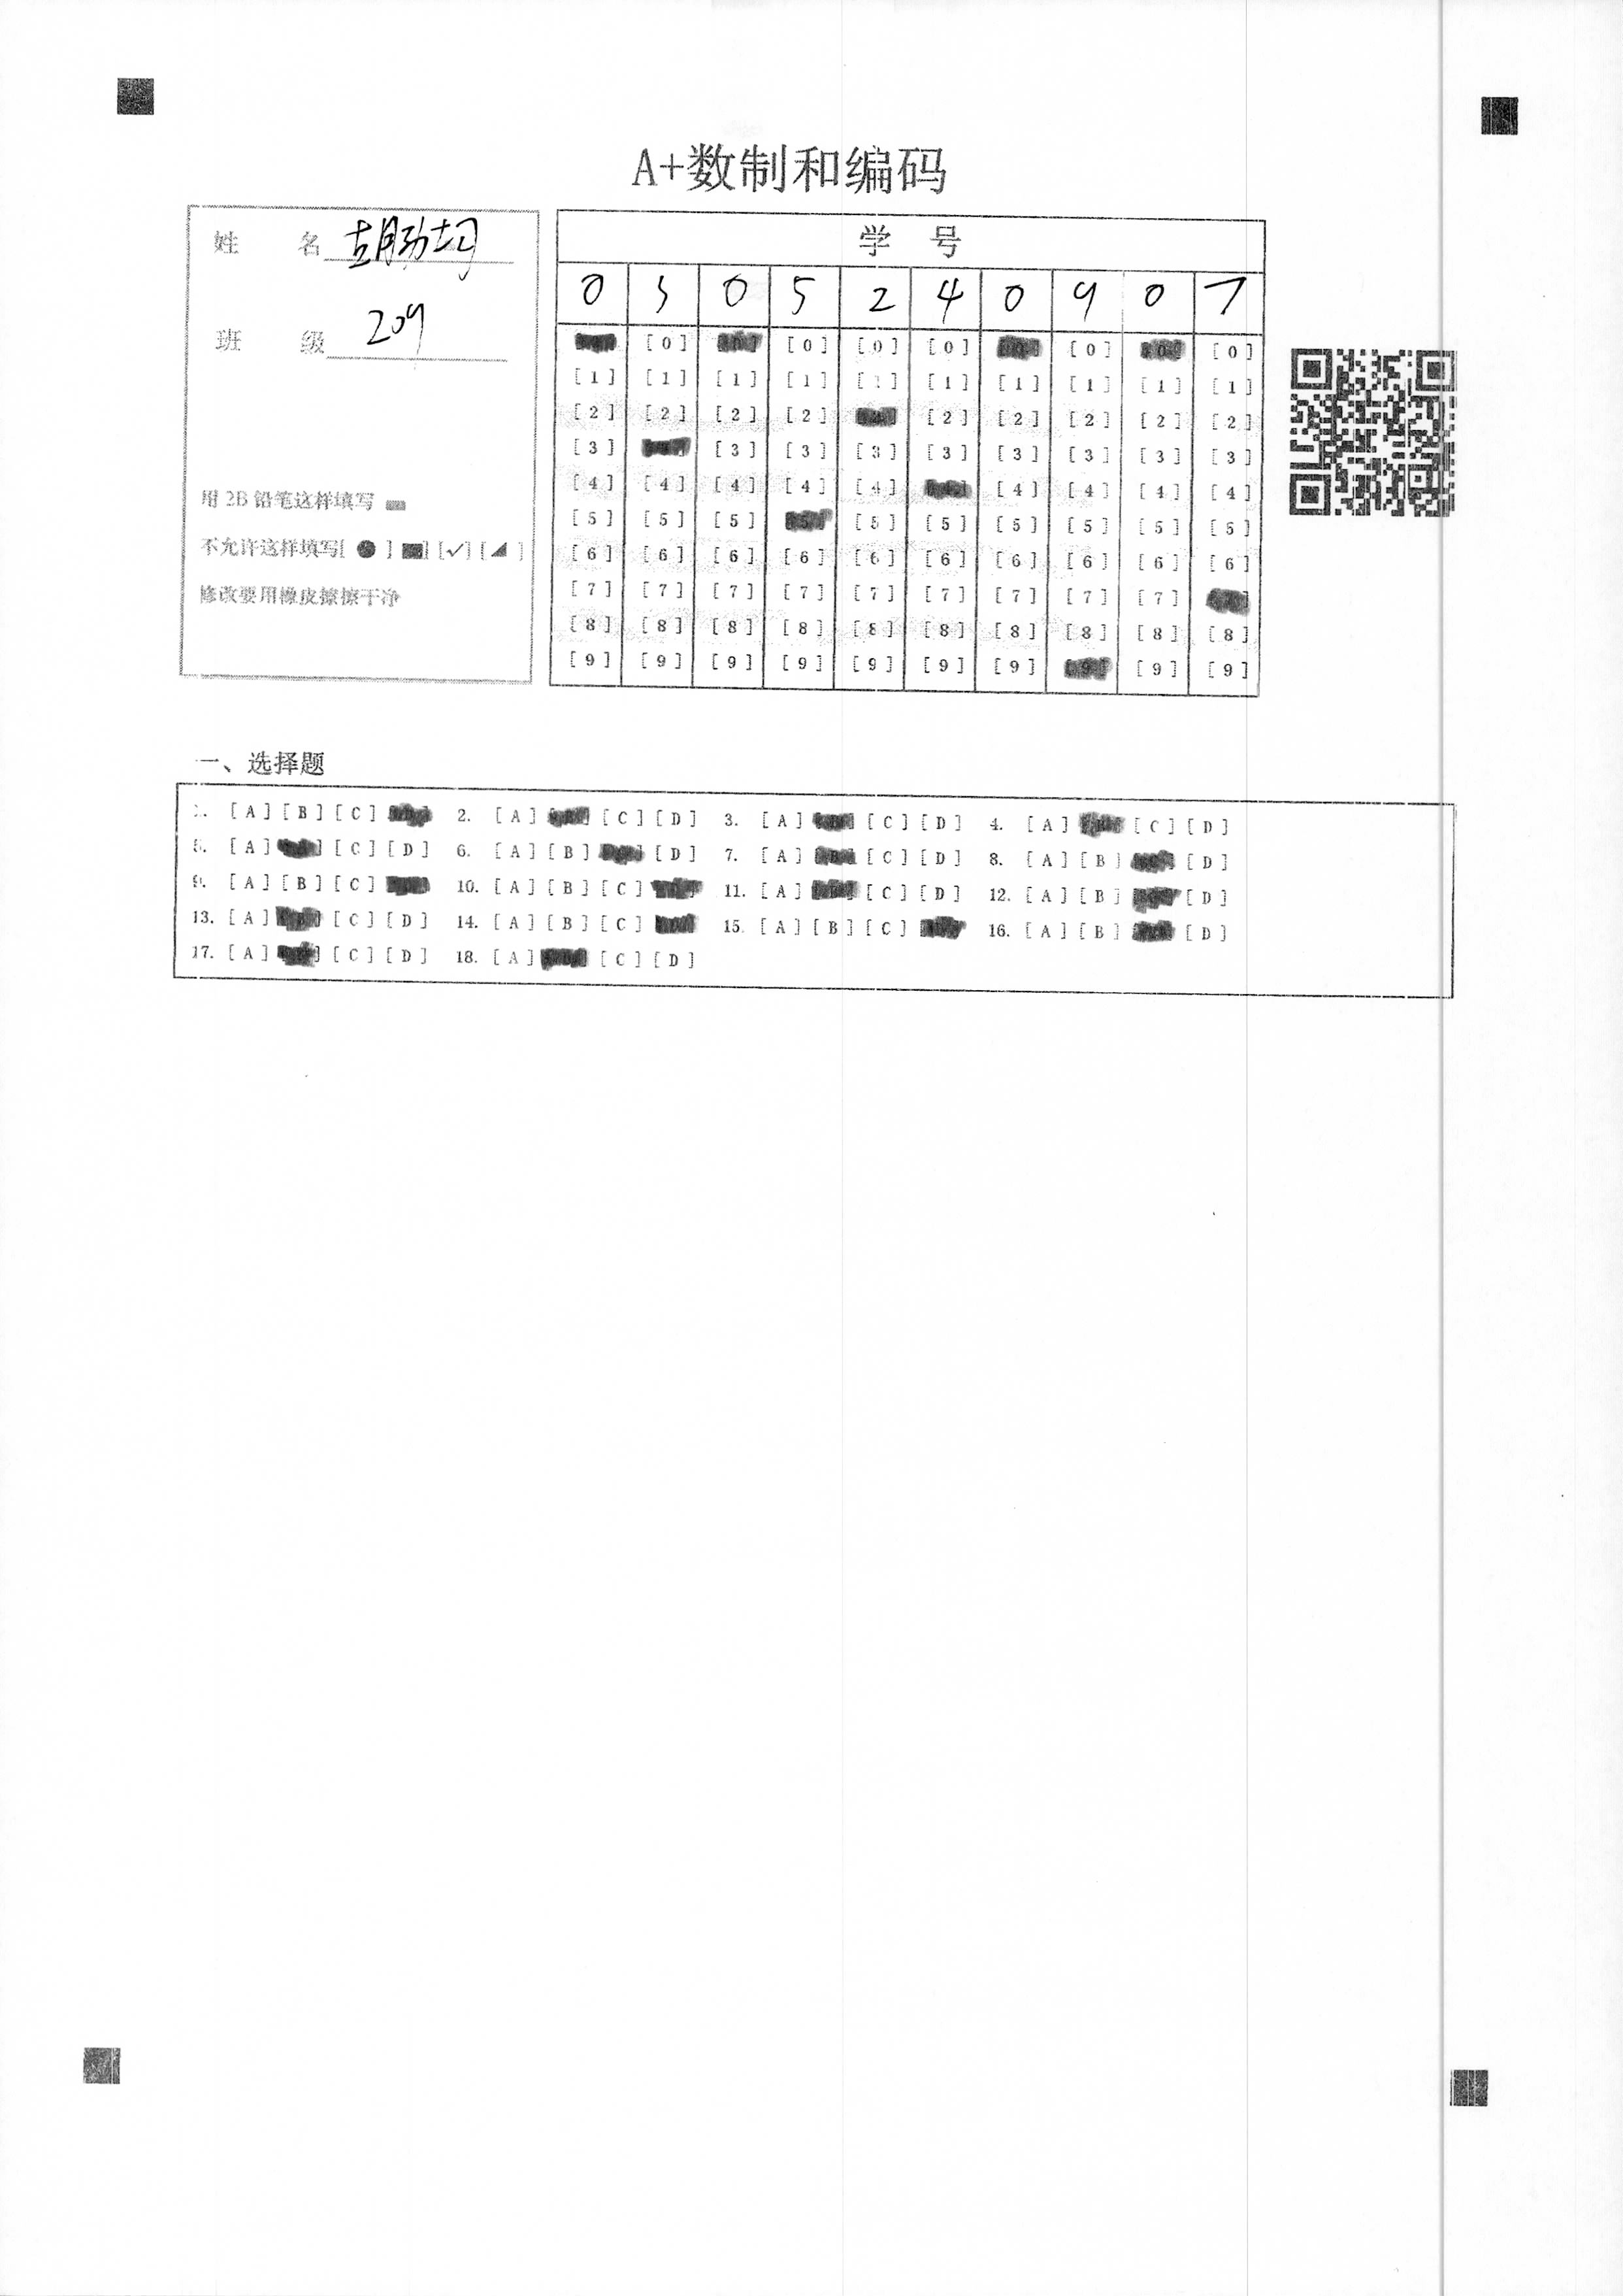 A+数制和编码
姓 名 胡劲均
班 级 209
用 2B 铅笔这样填写
不允许这样填写[ ● ] [■] [✓] [◢ ]
修改要用橡皮擦擦干净
学 号
0 3 0 5 2 4 0 9 0 7
[0] [0] [0] [0] [0] [0]
[1] [1] [1] [1] [1] [1] [1] [1] [1] [1]
[2] [2] [2] [2] [2] [2] [2] [2] [2]
[3] [3] [3] [3] [3] [3] [3] [3] [3]
[4] [4] [4] [4] [4] [4] [4] [4] [4]
[5] [5] [5] [5] [5] [5] [5] [5] [5]
[6] [6] [6] [6] [6] [6] [6] [6] [6] [6]
[7] [7] [7] [7] [7] [7] [7] [7] [7]
[8] [8] [8] [8] [8] [8] [8] [8] [8] [8]
[9] [9] [9] [9] [9] [9] [9] [9] [9]
一、选择题
1. [A] [B] [C] 2. [A] [C] [D] 3. [A] [C] [D] 4. [A] [C] [D]
5. [A] [C] [D] 6. [A] [B] [D] 7. [A] [C] [D] 8. [A] [B] [D]
9. [A] [B] [C] 10. [A] [B] [C] 11. [A] [C] [D] 12. [A] [B] [D]
13. [A] [C] [D] 14. [A] [B] [C] 15. [A] [B] [C] 16. [A] [B] [D]
17. [A] [C] [D] 18. [A] [C] [D]